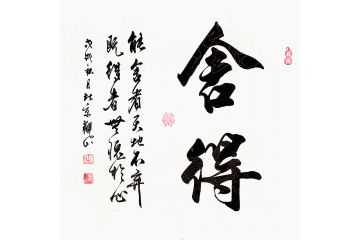 舍得
能舍者天地不弃
既得者無愧於心
戊戌秋月北京